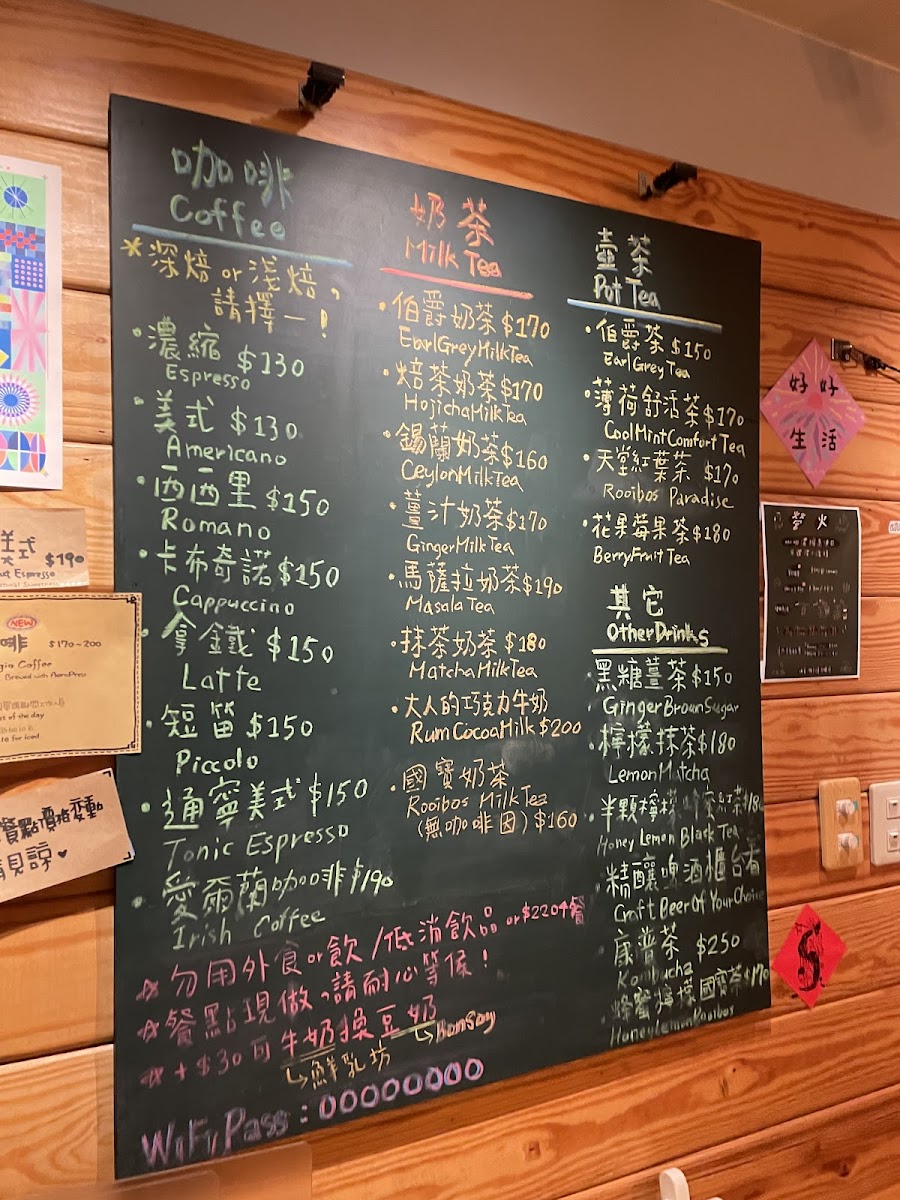 咖啡
Coffee
*深焙 or 淺焙,
請擇一!
·濃縮 $130
Espresso
·美式 $130
Americano
·西西里 $150
Romano
·卡布奇諾 $150
Cappuccino
·拿鐵 $150
Latte
·短笛 $150
Piccolo
·通寧美式 $150
Tonic Espresso
·愛爾蘭咖啡 $190
Irish Coffee
奶茶
Milk Tea
·伯爵奶茶 $170
EarlGreyMilkTea
·焙茶奶茶 $170
HojichaMilkTea
·錫蘭奶茶 $160
CeylonMilkTea
·薑汁奶茶 $170
GingerMilkTea
·馬薩拉奶茶 $190
MasalaTea
·抹茶奶茶 $180
MatchaMilkTea
·大人的巧克力牛奶
RumCocoaMilk $200
·國寶奶茶
Rooibos MilkTea
(無咖啡因) $160
壺茶
Pot Tea
·伯爵茶 $150
EarlGreyTea
·薄荷舒活茶 $170
CoolMintComfortTea
·天堂紅葉茶 $170
Rooibos Paradise
·花果莓果茶 $180
BerryFruitTea
其它
OtherDrinks
·黑糖薑茶 $150
GingerBrownSugar
·檸檬抹茶 $180
LemonMatcha
·半顆檸檬蜂蜜紅茶 $180
Honey Lemon Black Tea
·精釀啤酒櫃台看
Craft Beer Of Your Choice
·康普茶 $250
Kombucha
·蜂蜜檸檬國寶茶 $170
HoneyLemonRooibos
☆勿用外食or飲/低消飲品 or $220↑餐
☆餐點現做,請耐心等候!
☆+$30可牛奶換豆奶
鮮乳坊
BonSoy
WiFi Pass: 00000000
美式 $190
Espresso
NEW
啡 $170~200
Coffee
Brewed with AeroPress
of the day
for iced
餐點價格變動
請見諒♥
好好
生活
螢火